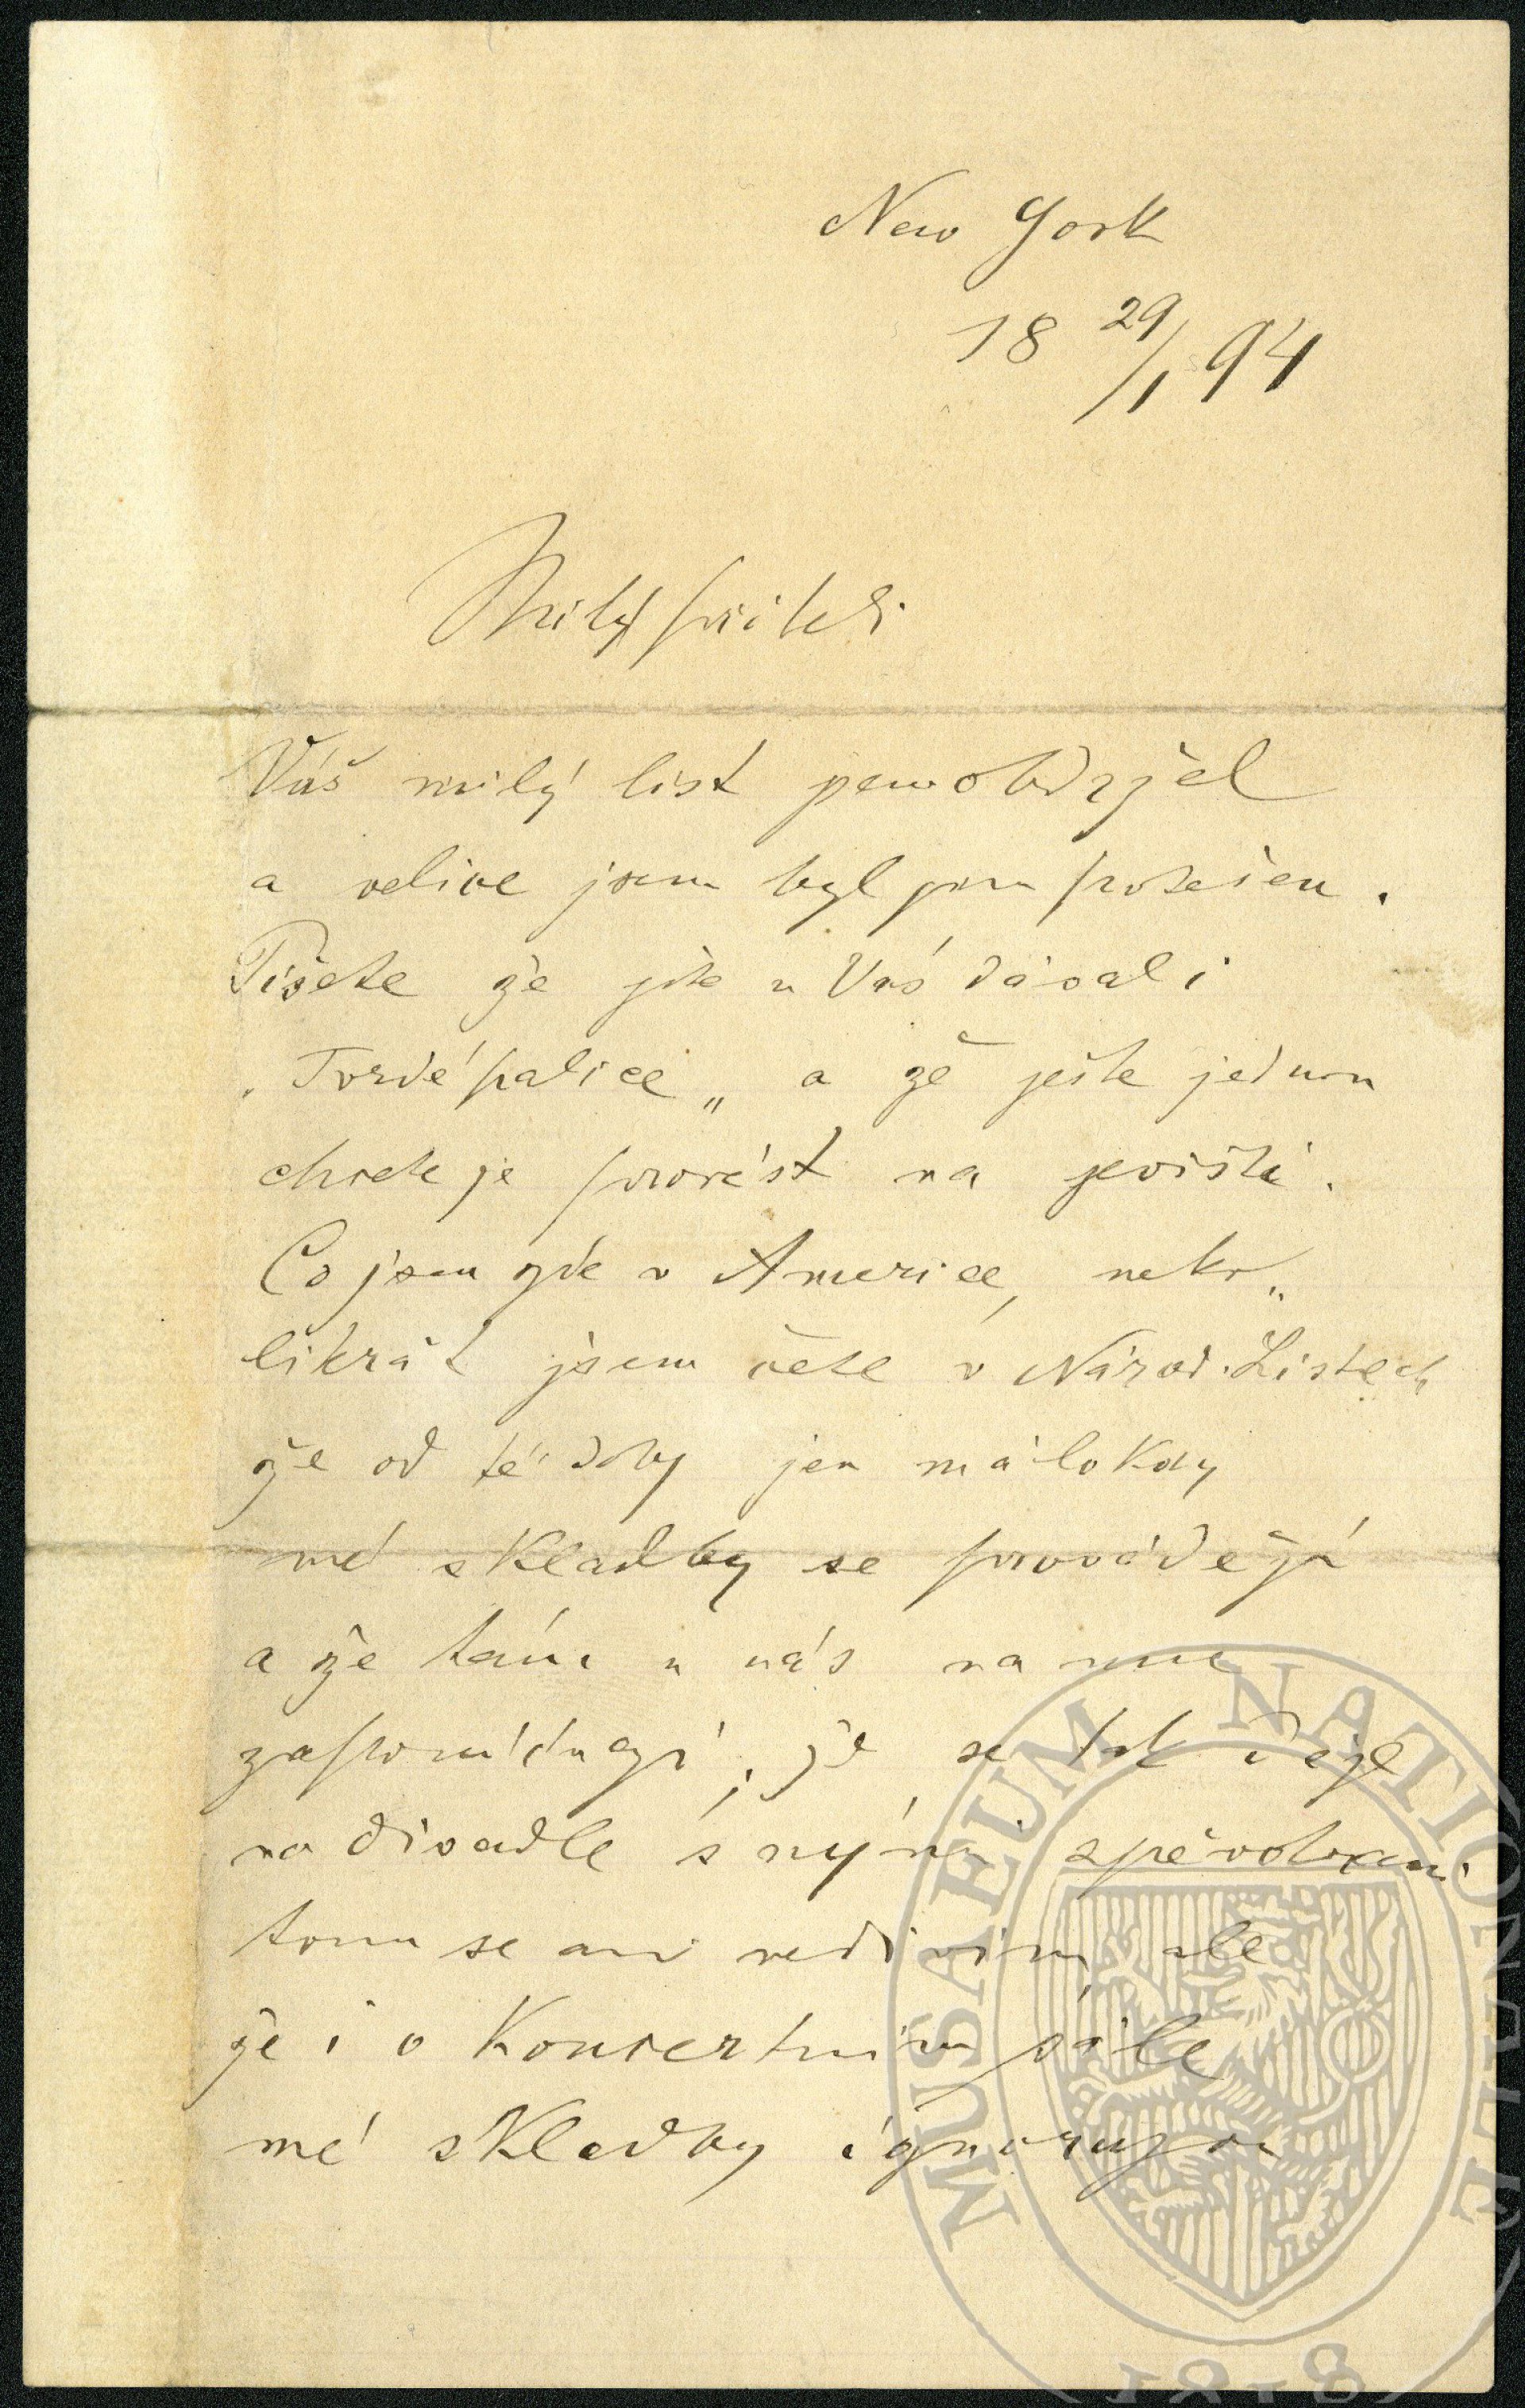 New York
18 29/1 94
Milý příteli
Váš milý list jsem obdržel
a velice jsem byl jím potěšen.
Píšete že jste u Vás dávali
„Tvrdé palice„ a že ještě jednou
chcete je provést na jevišti.
Co jsem zde v Americe, neko„
likrát jsem četl v Národ. Listech
že od té doby jen málokdy
mé skladby se provádějí
a že tam u nás na mne
zapomínají; že se tak děje
na divadle s mými zpěvohrami
tomu se ani nedivím, ale
že i v koncertním sále
mé skladby ignorujou
MUSAEUM NATIONALE
1818